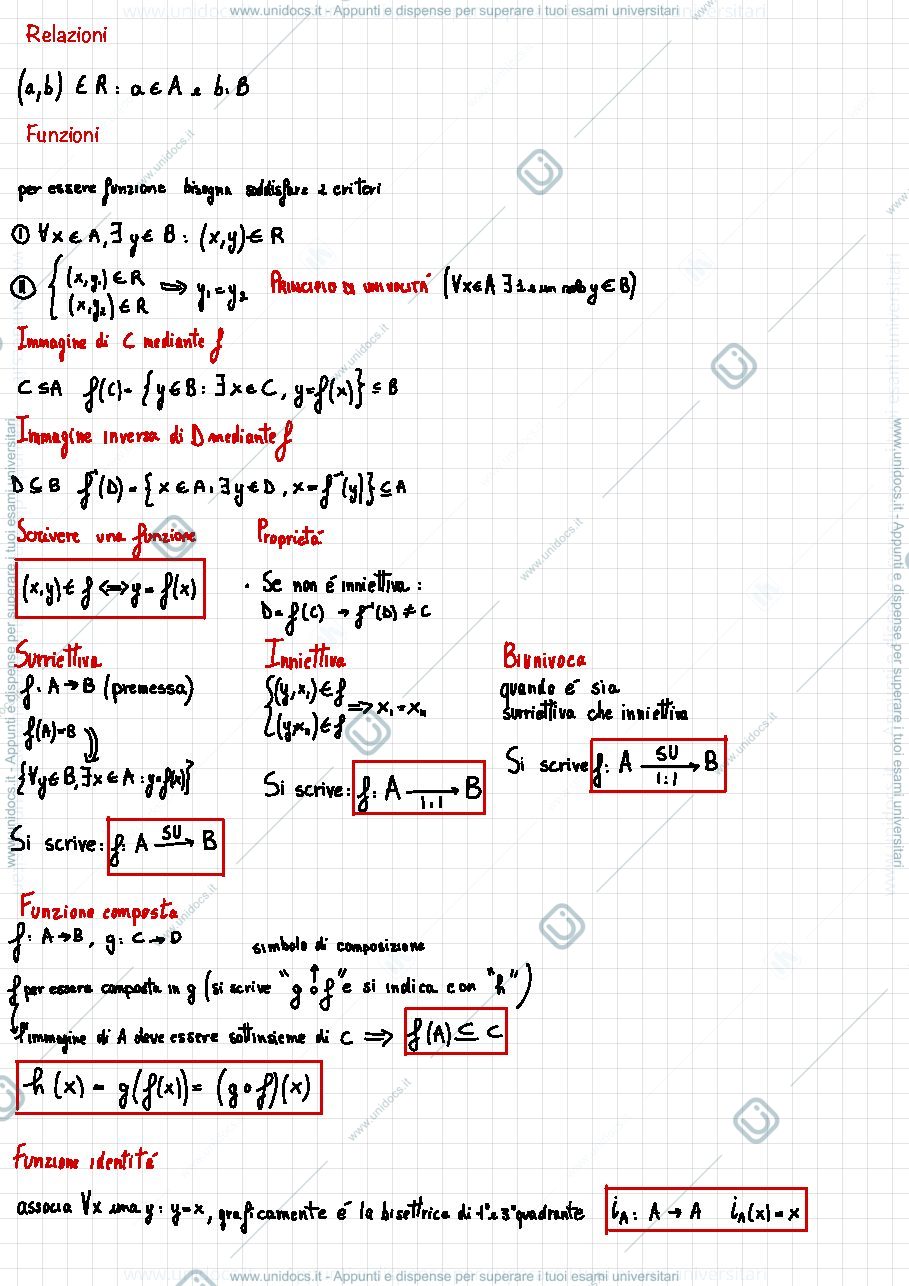 www.unidocs.it - Appunti e dispense per superare i tuoi esami universitari
Relazioni
(a,b) ∈ R : a ∈ A e b ∈ B
Funzioni
per essere funzione bisogna soddisfare 2 criteri
Ⓘ ∀x ∈ A, ∃ y ∈ B : (x,y) ∈ R
Ⓘⓘ { (x,y₁) ∈ R (x,y₂) ∈ R ⟹ y₁ = y₂ PRINCIPIO DI UNIVOCITÁ (∀x∈A ∃ 1 e un solo y ∈ B)
Immagine di C mediante f
C ⊆ A f(C) = {y ∈ B : ∃ x ∈ C, y = f(x)} ⊆ B
Immagine inversa di D mediante f
D ⊆ B f⁻¹(D) = {x ∈ A : ∃ y ∈ D, x = f⁻¹(y)} ⊆ A
Scrivere una funzione
(x,y) ∈ f ⟺ y = f(x)
Proprietá
· Se non é inniettiva :
D = f(C) → f⁻¹(D) ≠ C
Surriettiva
f : A → B (premessa)
f(A) = B
{∀y ∈ B, ∃x ∈ A : y = f(x)}
Si scrive: f: A SU→ B
Inniettiva
{ (y,x₁) ∈ f (y,x₁₁) ∈ f ⟹ x₁ = x₁₁
Si scrive: f: A 1:1→ B
Biunivoca
quando é sia
surriettiva che inniettiva
Si scrive f: A SU 1:1→ B
Funzione composta
f : A → B, g : C → D
simbolo di composizione
f per essere composta in g (si scrive "g ∘ f" e si indica con "h")
l'immagine di A deve essere sottinsieme di C ⟹ f(A) ⊆ C
h(x) = g(f(x)) = (g ∘ f)(x)
Funzione identitá
associa ∀x una y : y = x, graficamente é la bisettrice di 1° e 3° quadrante i_A : A → A i_A(x) = x
www.unidocs.it - Appunti e dispense per superare i tuoi esami universitari